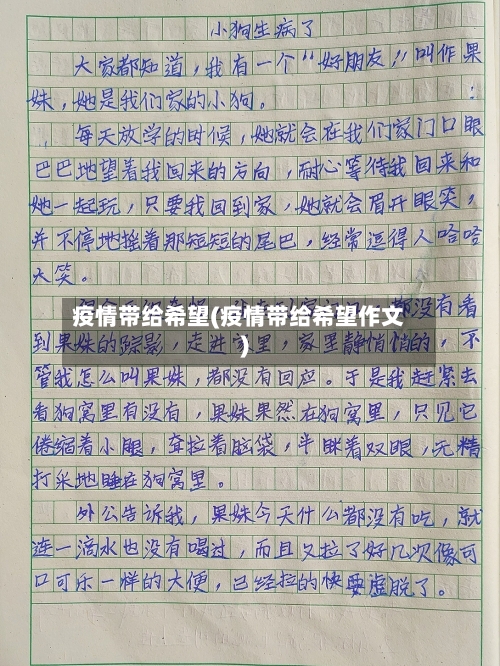 小狗生病了
大家都知道，我有一个“好朋友”叫作果
妹，她是我们家的小狗。
每天放学的时候，她就会在我们家门口眼
巴巴地望着我回来的方向，耐心等待我回来和
她一起玩，只要我回到家，她就会眉开眼笑，
并不停地摇着那短短的尾巴，经常逗得人哈哈
大笑。
都没有看
疫情带给希望(疫情带给希望作文
)
到果妹的踪影，走进家里，家里静悄悄的，不
管我怎么叫果妹，都没有回应。于是我赶紧去
看狗窝里有没有，果妹果然在狗窝里，只见它
倦缩着小腿，耷拉着脑袋，半眯着双眼，无精
打采地睡在狗窝里。
外公告诉我，果妹今天什么都没有吃，就
连一滴水也没有喝过，而且又拉了好几次像可
口可乐一样的大便，已经拉的快要虚脱了。